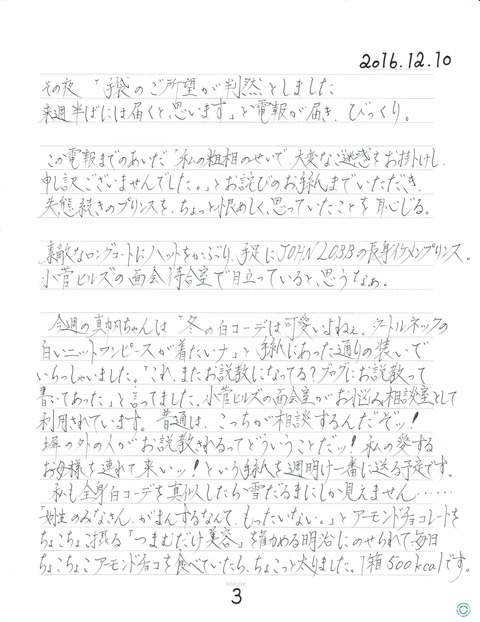 2016.12.10
その夜 「手袋のご所望が判然としました
来週半ばには届くと、思います」と電報が届き、びっくり。
この電報までのあいだ「私の粗相のせいで、大変なご迷惑をお掛けし、
申し訳ございませんでした。」とお詫びのお手紙までいただき、
失態続きのプリンスを、ちょっと恨めしく、思っていたことを恥じる。
素敵なロングコートにハットをかぶり、手足にJOHN LOBBの長身イケメンプリンス。
小菅ヒルズの面会待合室で目立っていると、思うなぁ。
今週の真帆ちゃんは「冬の白コーデは可愛いよねぇ。タートルネックの
白いニットワンピースが着たいナ」と手紙にあった通りの装いで
いらっしゃいました。「これ、またお説教になってる?ブログにお説教って
書いてあった」と言ってました。小菅ヒルズの面会室がお悩み相談室として
利用されています。普通は、こっちが相談するんだぞッ!
塀の外の人がお説教されるってどういうことだッ!私の愛する
お母様を連れて来いッ!という手紙を週明け一番に送る予定です。
私も全身白コーデを真似したら雪だるまにしか見えません……
「女性のみなさん、がまんするなんて、もったいない。」とアーモンドチョコレートを
ちょこちょこ摂る「つまむだけ美容」を勧める明治にのせられて毎日
ちょこちょこアーモンドチョコを食べていたら、ちょこっと太りました。1箱500kcalです。
KOKUYO
3